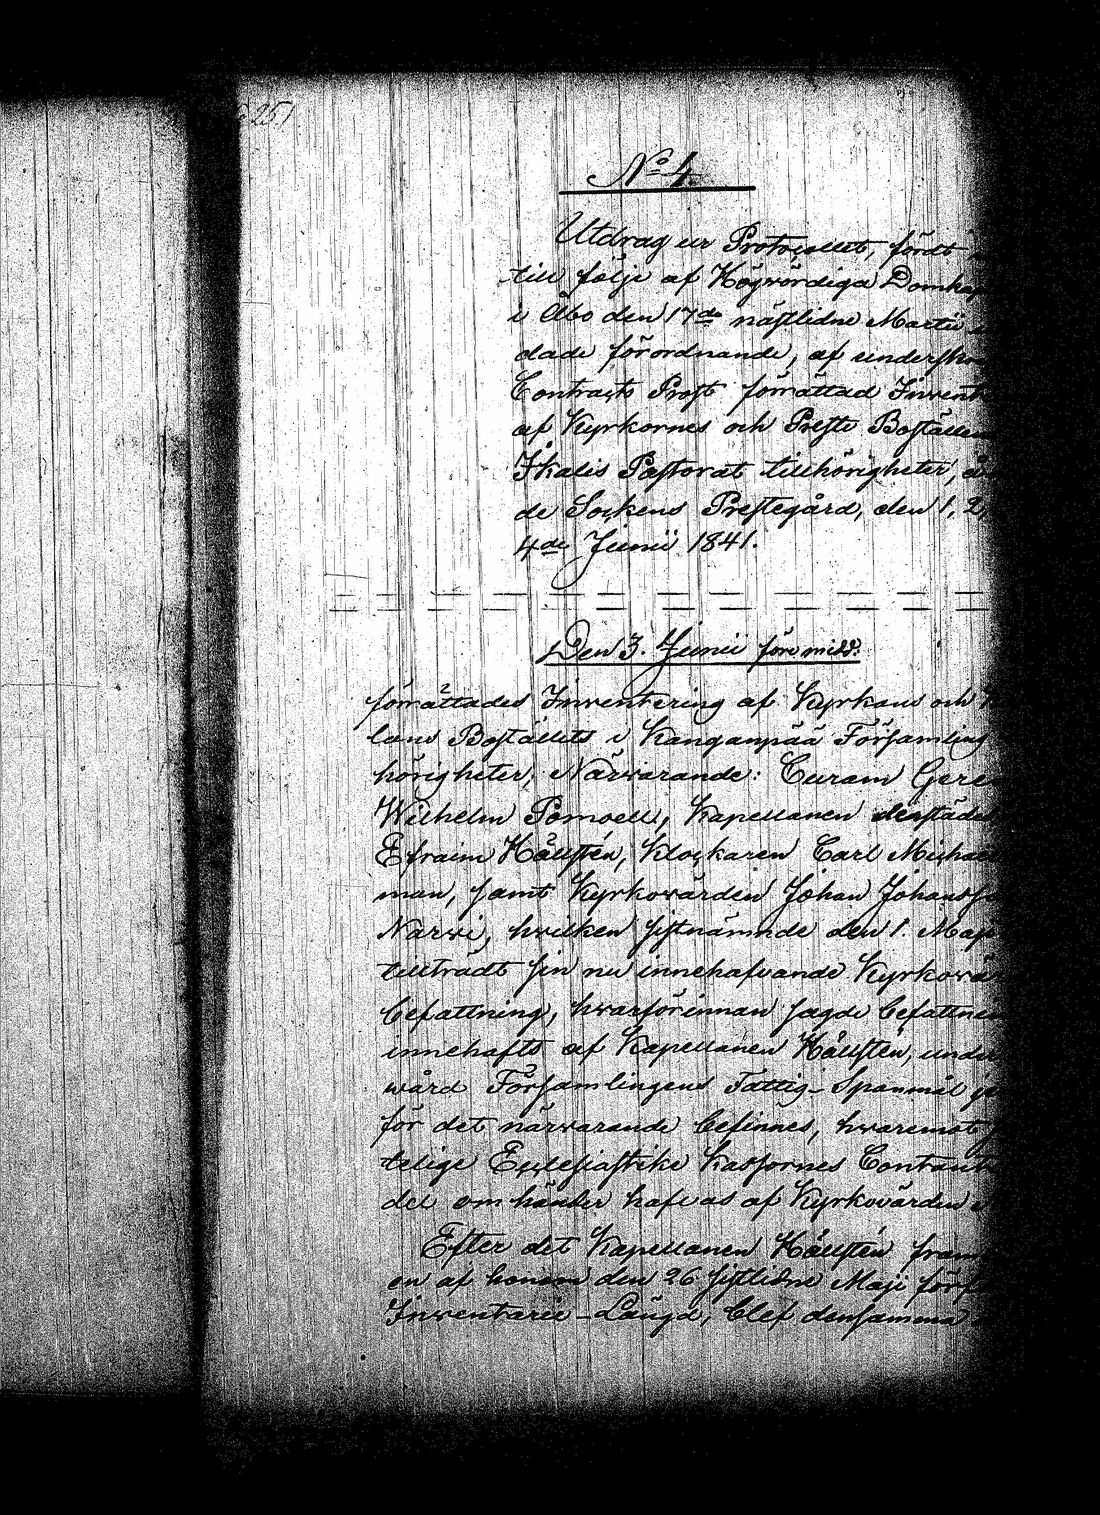 251
No 4.
Utdrag ur Protocollet, fördt
till följe af Högvördiga Domkap
i Åbo den 17de nästlidne Martii
dade förordnande, af underskr
Contracts Prost förrättad Invent
af Kyrkornes och Preste Boställen
Ikalis Pastorat tillhörigheter,
de Sockens Prestegård, den 1, 2,
4de Junii 1841.
Den 3. Junii förmidd:
förrättades Inventering af Kyrkans och K
lans Boställets i Kanganpää Församling
hörigheter; Närvarande: Curam Geren
Wilhelm Pomoell, Kapellanen derstädes
Efraim Hållstén, Klockaren Carl Michael
man, samt Kyrkovärden Johan Johansso
Narvi, hvilken sistnämnde den 1. Maji
tillträdt sin nu innehafvande Kyrkovär
befattning, hvarförinnan sagde befattnin
innehafts af Kapellanen Hållstén, under
vård Församlingens Fattig-Spanmål
för det närvarande befinnes, hvaremot
telige Ecclesiastike Kassornes Contant
del om händer hafvas af Kyrkovärden
Efter det Kapellanen Hållstén fram
en af honom den 26 sistlidne Maji förf
Inventarii-Längd, blef densamma